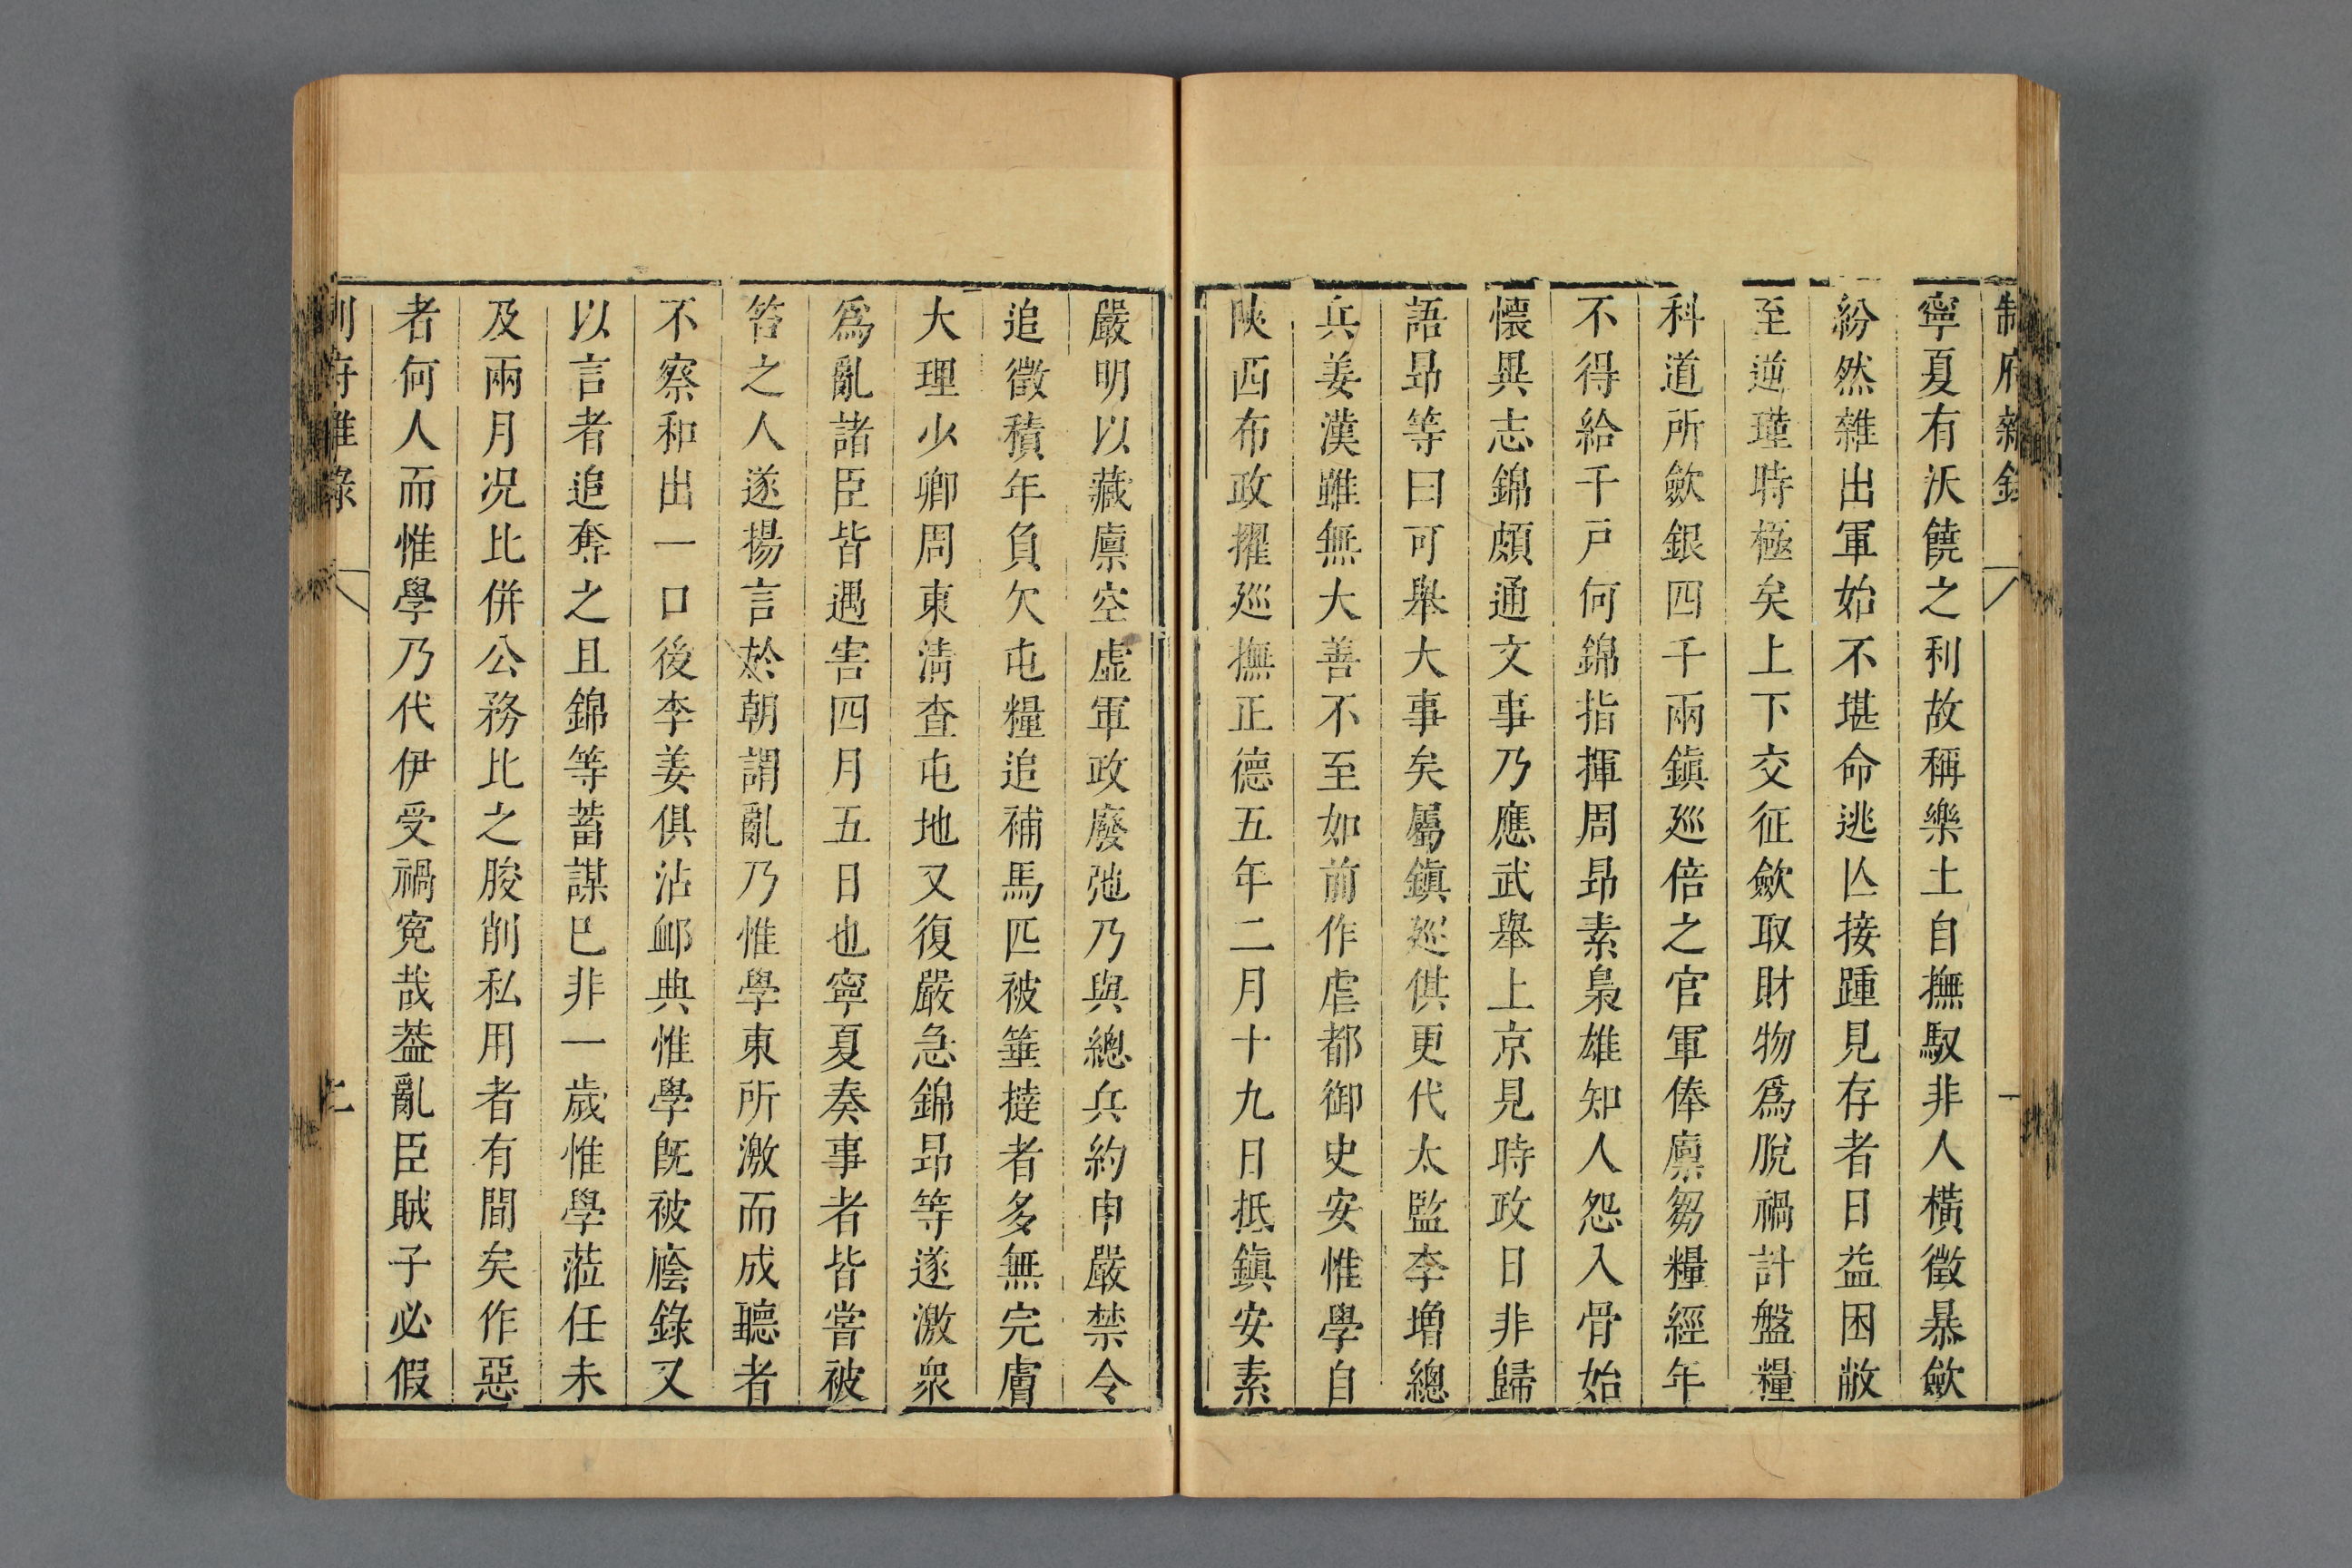 制府雜錄
寧夏有沃饒之利故稱樂土自撫馭非人橫徵暴斂
紛然雜出軍始不堪命逃亾接踵見存者日益困敝
至逆瑾時極矣上下交征斂取財物爲脫禍計盤糧
科道所斂銀四千兩鎭廵倍之官軍俸廪芻糧經年
不得給千戸何錦指揮周昻素梟雄知人怨入骨始
懷異志錦頗通文事乃應武舉上京見時政日非歸
語昻等曰可舉大事矣屬鎭廵俱更代太監李增總
兵姜漢雖無大善不至如前作虐都御史安惟學自
陜西布政擢廵撫正德五年二月十九日抵鎭安素
嚴明以藏廪空虛軍政廢弛乃與總兵約申嚴禁令
追徵積年負欠屯糧追補馬匹被箠撻者多無完膚
大理少卿周東淸查屯地又復嚴急錦昻等遂激衆
爲亂諸臣皆遇害四月五日也寧夏奏事者皆嘗被
笞之人遂揚言於朝謂亂乃惟學東所激而成聽者
不察和出一口後李姜俱沾卹典惟學旣被廕錄又
以言者追奪之且錦等蓄謀已非一歲惟學蒞任未
及兩月况比併公務比之朘削私用者有間矣作惡
者何人而惟學乃代伊受禍寃哉葢亂臣賊子必假
制府雜錄